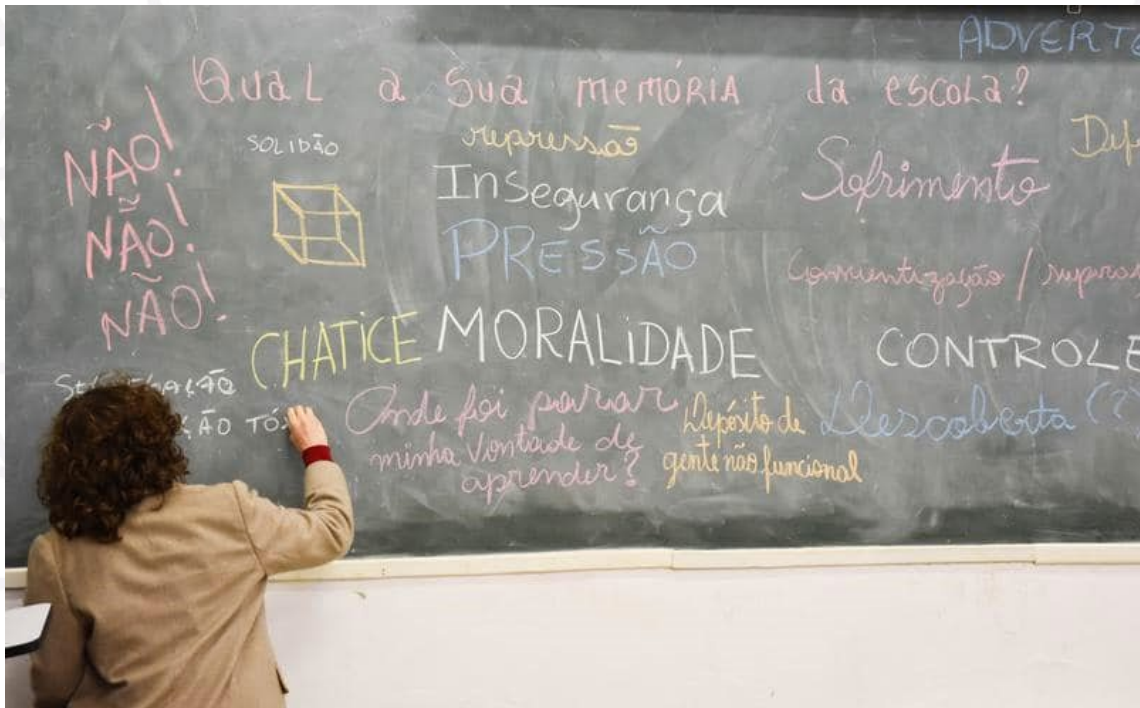 ADVERTE
Qual a sua memória da escola?
NÃO!
NÃO!
NÃO!
SOLIDÃO
repressão
Insegurança
PRESSÃO
Sofrimento
Conscientização /
CHATICE
MORALiDADE
CONTROLE
ÇÃO TÓX
Onde foi parar
minha vontade de
aprender?
Depósito de
gente não funcional
Descoberta (?